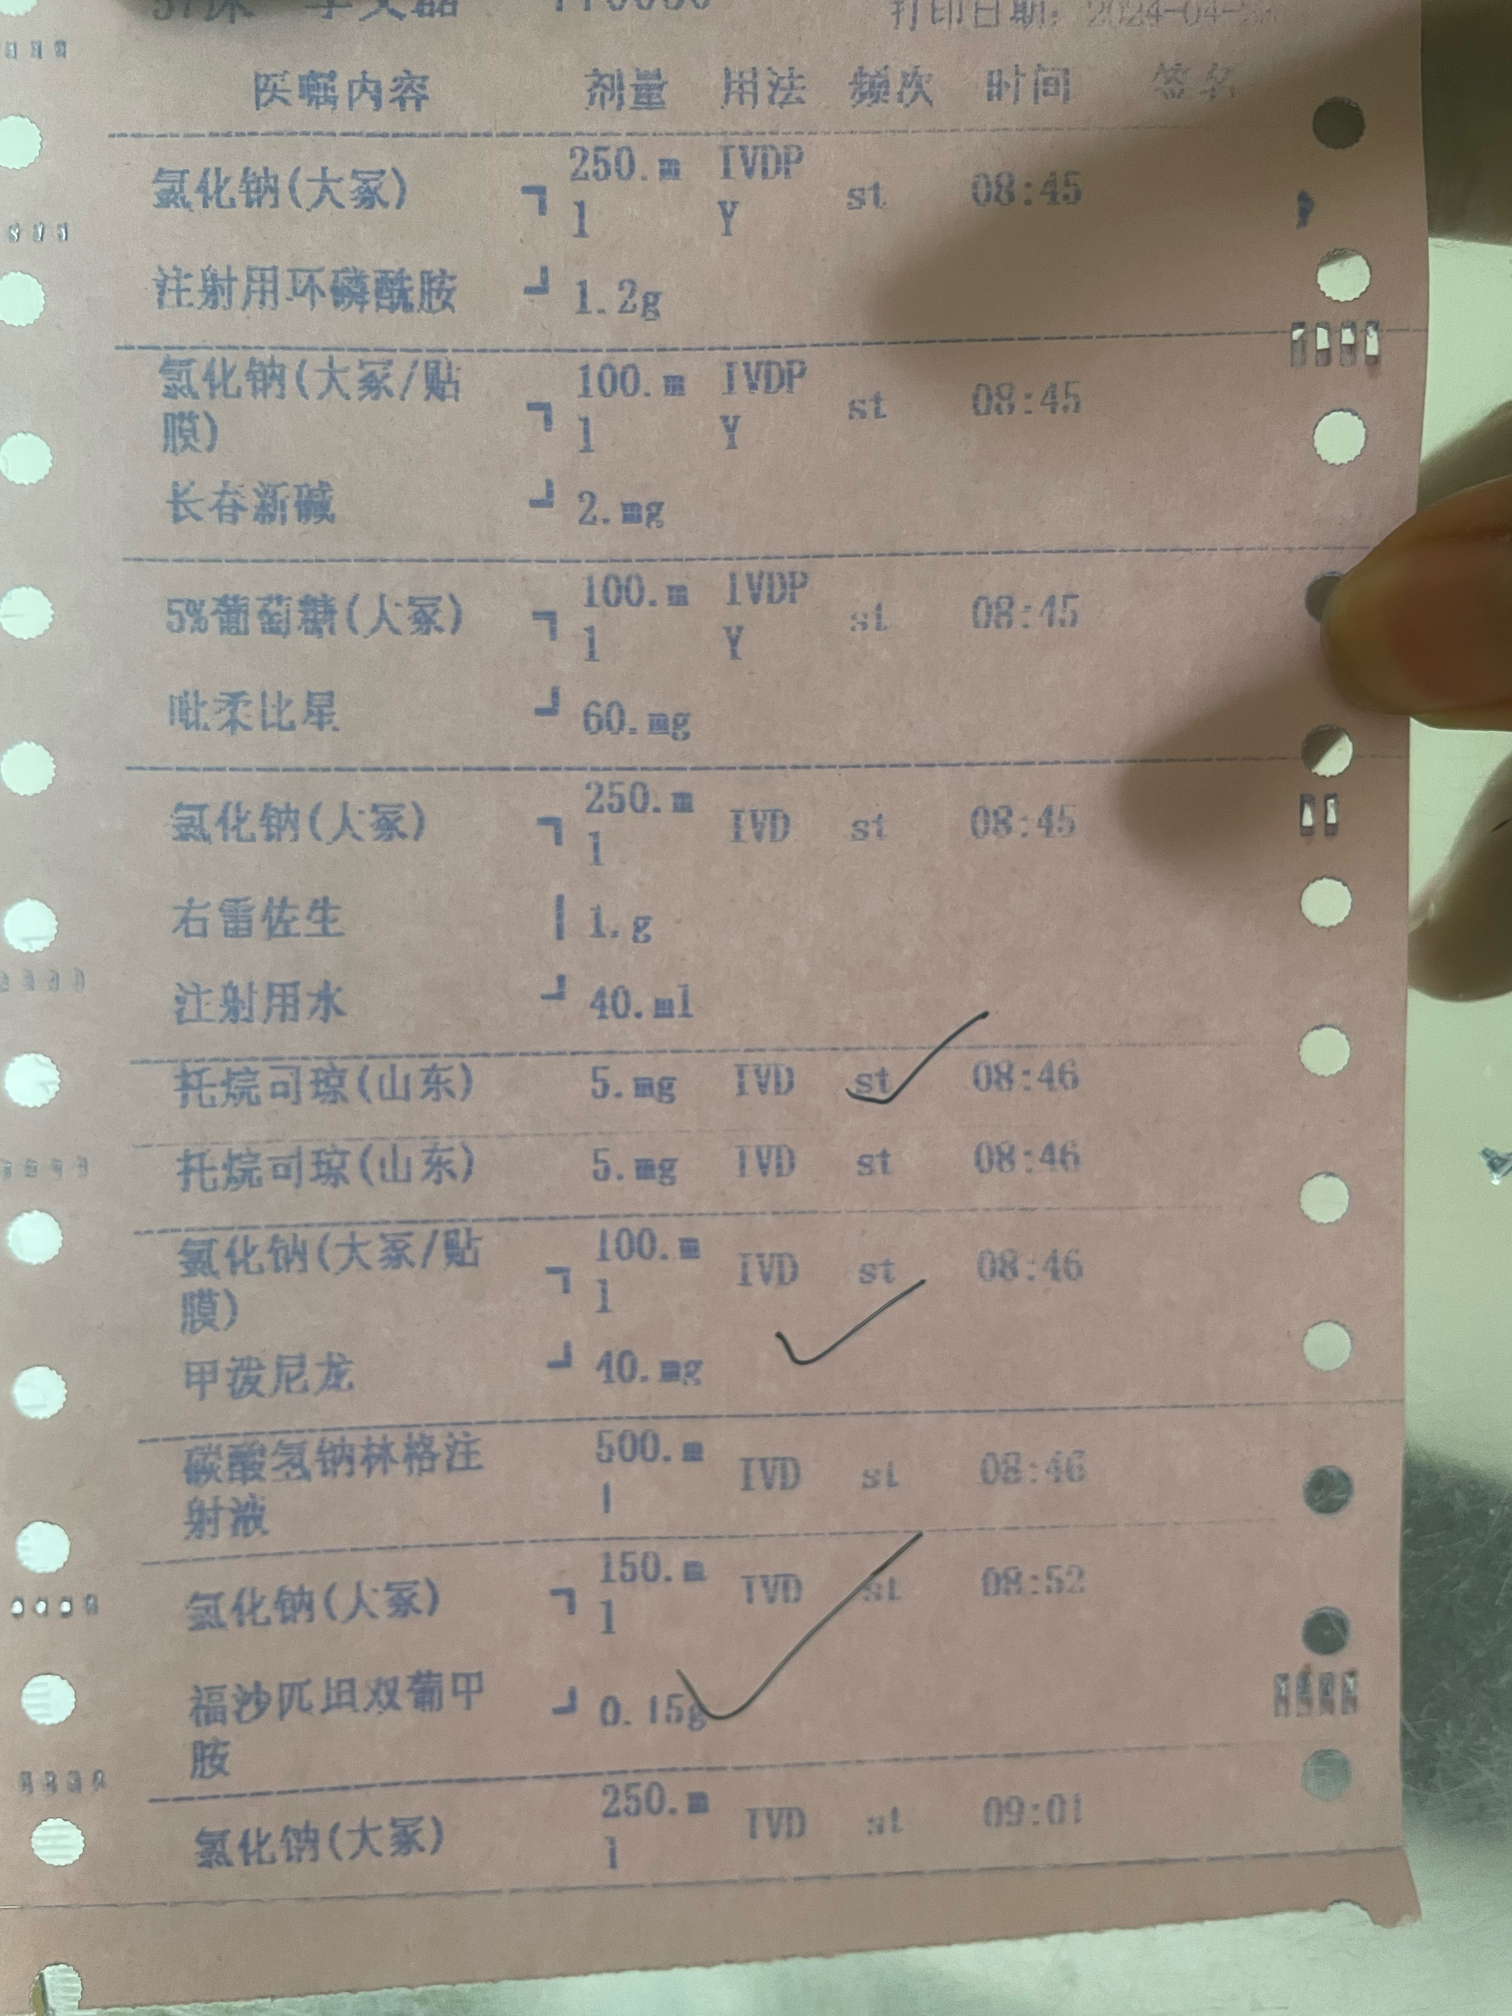 打印日期: 2024-04-2
医嘱内容 剂量 用法 频次 时间 签名
250.m IVDP
氯化钠(大冢) ┐ st 08:45
1 Y
注射用环磷酰胺 ┘ 1.2g
氯化钠(大冢/贴 100.m IVDP
┐ st 08:45
膜) 1 Y
长春新碱 ┘ 2.mg
100.m IVDP
5%葡萄糖(大冢) ┐ st 08:45
1 Y
吡柔比星 ┘ 60.mg
250.m
氯化钠(大冢) ┐ IVD st 08:45
1
右雷佐生 | 1.g
注射用水 ┘ 40.ml
托烷司琼(山东) 5.mg IVD st 08:46
托烷司琼(山东) 5.mg IVD st 08:46
氯化钠(大冢/贴 100.m
┐ IVD st 08:46
膜) 1
甲泼尼龙 ┘ 40.mg
碳酸氢钠林格注 500.m
IVD st 08:46
射液 1
150.m
氯化钠(大冢) ┐ IVD st 08:52
1
福沙匹坦双葡甲 ┘ 0.15g
胺
250.m
氯化钠(大冢) IVD st 09:01
1